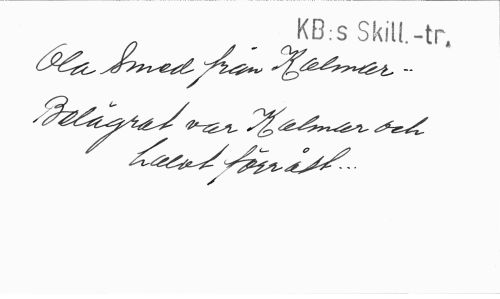 KB:s Skill.-tr.
Ola Smed från Kalmar..
Belägrat var Kalmar och
halvt förrått...